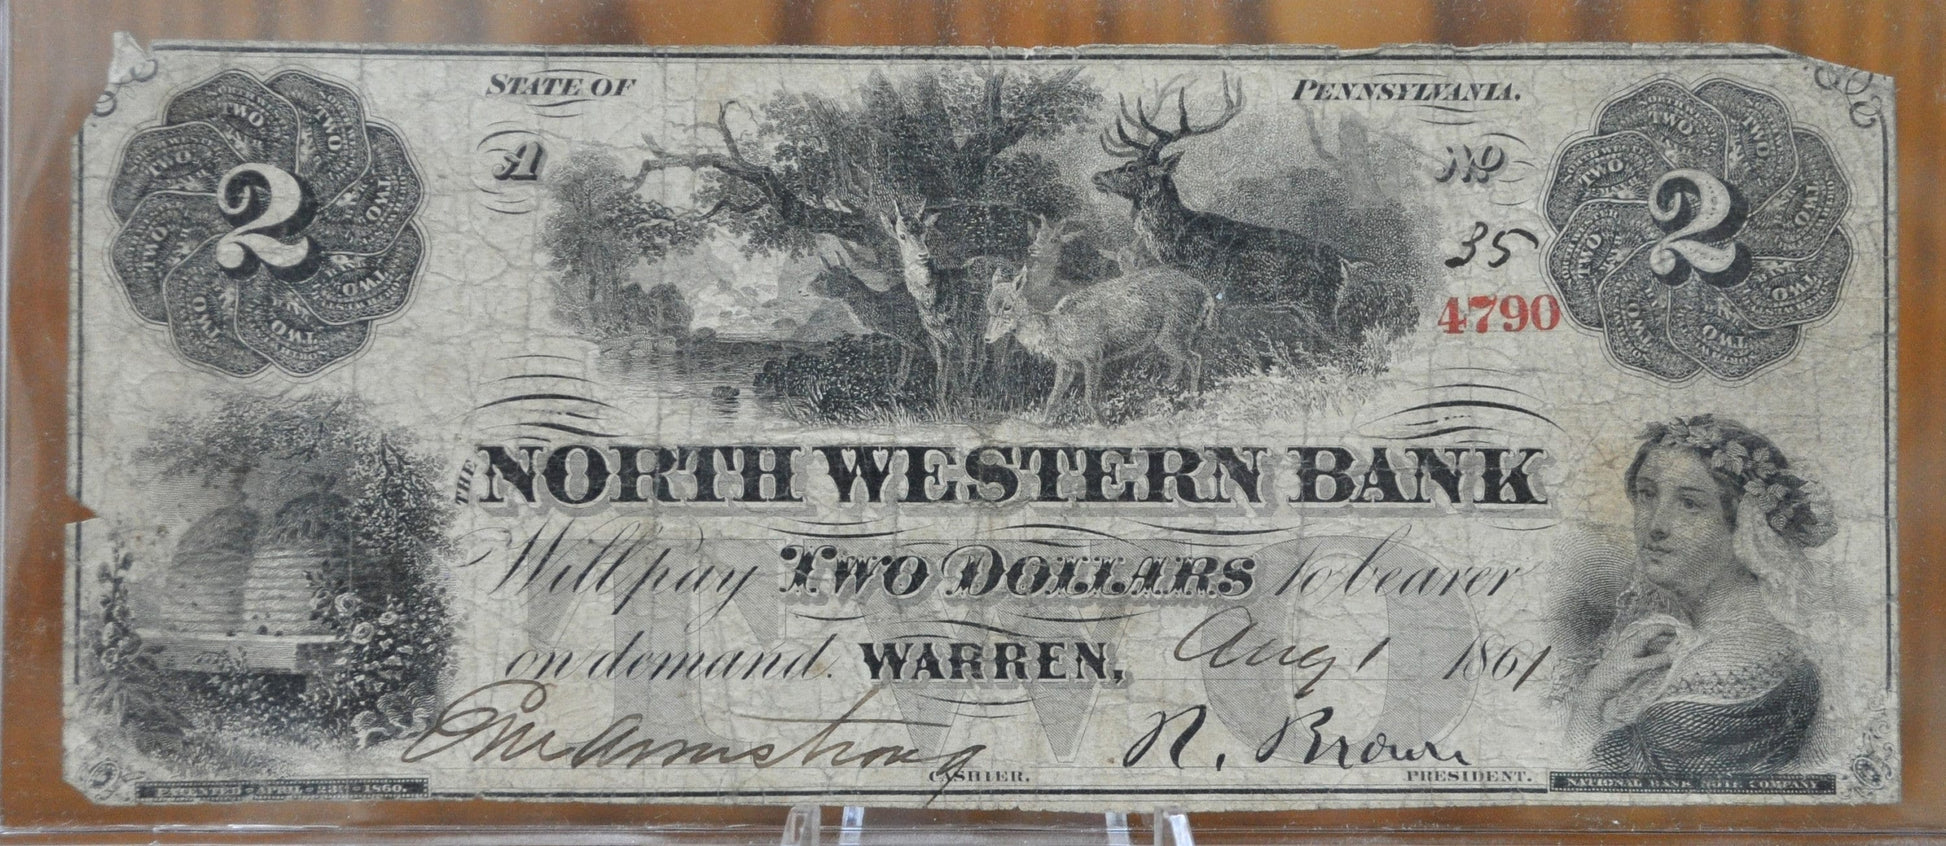 STATE OF PENNSYLVANIA.
A No
35
4790
2 2
THE NORTH WESTERN BANK
Will pay TWO DOLLARS to bearer
on demand. WARREN, Aug 1 1861
Armstrong N. Brown
CASHIER. PRESIDENT.
PATENTED APRIL 23D 1860. NATIONAL BANK NOTE COMPANY